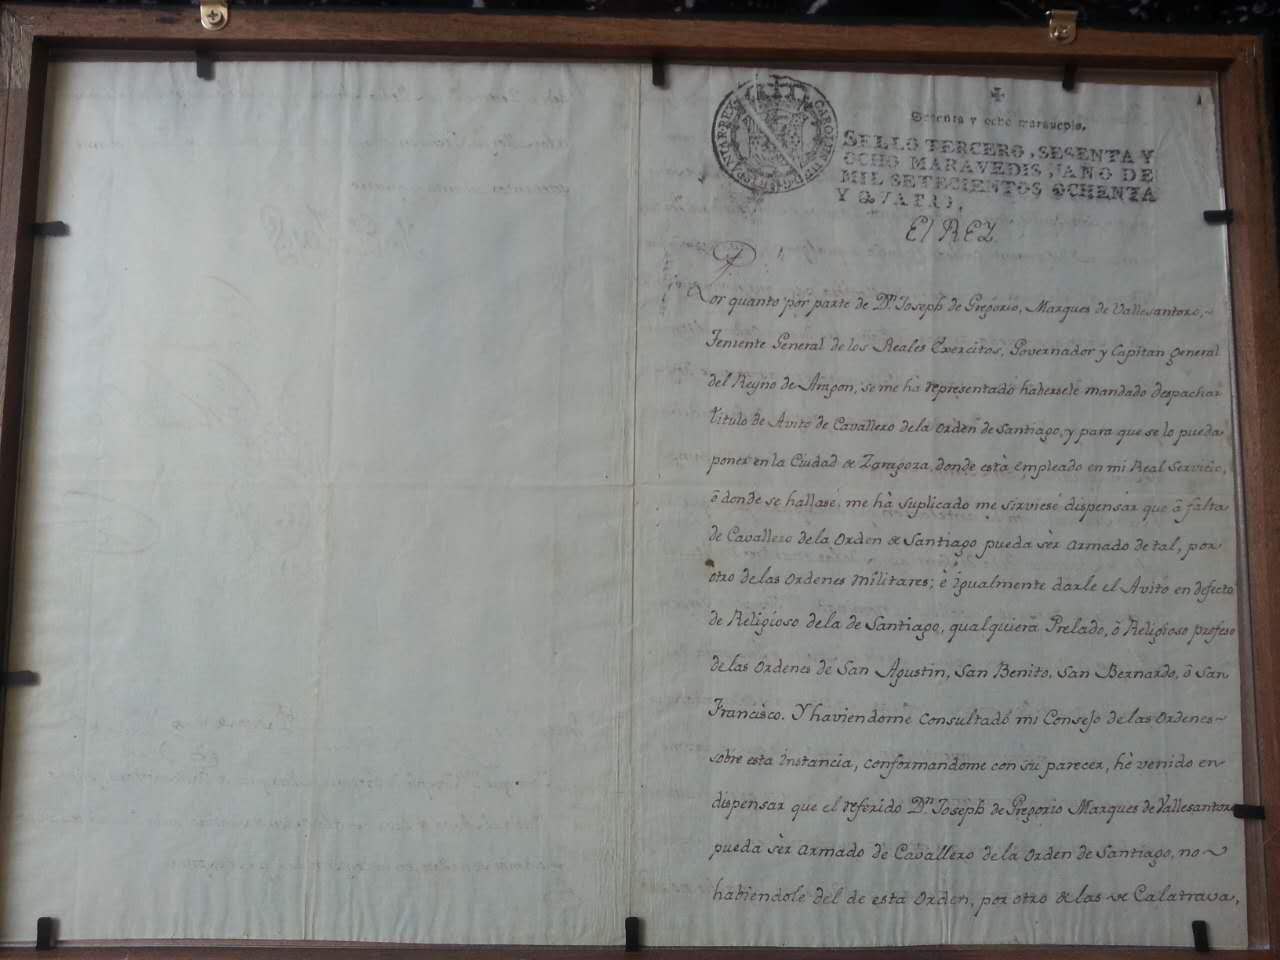 Sesenta y ocho maravedis.
SELLO TERCERO, SESENTA Y
OCHO MARAVEDIS, AÑO DE
MIL SETECIENTOS OCHENTA
Y QVATRO.
El REY
Por quanto por parte de Dn. Joseph de Gregorio, Marques de Vallesantoro,
Teniente General de los Reales Exercitos, Governador y Capitan general
del Reyno de Aragon, se me há representadó haberselé mandado despachar
titulo de Avito de Cavallero de la orden de Santiago, y para que se lo pueda
poner en la Ciudad de Zaragoza, donde está empleado en mi Real Servicio,
ó donde se hallasé, me há suplicado me sirviesé dispensár que á falta
de Cavallero de la Orden de Santiago pueda sèr armado de tal, por
otro de las Ordenes Militares; è igualmente darle el Avito en defecto
de Religioso de la de Santiago, qualquiera Prelado, ó Religioso profeso
de las ordenes de San Agustin, San Benito, San Bernardo, ó San
Francisco. Y haviendomé consultadó mi Consejo de las Ordenes
sobre esta instancia, conformandome con su parecer, hè venido en
dispensar que el referido Dn. Joseph de Gregorio Marques de Vallesantoro
pueda sèr armado de Cavallero de la Orden de Santiago, no
habiendole del de esta Orden, por otro de las de Calatrava,